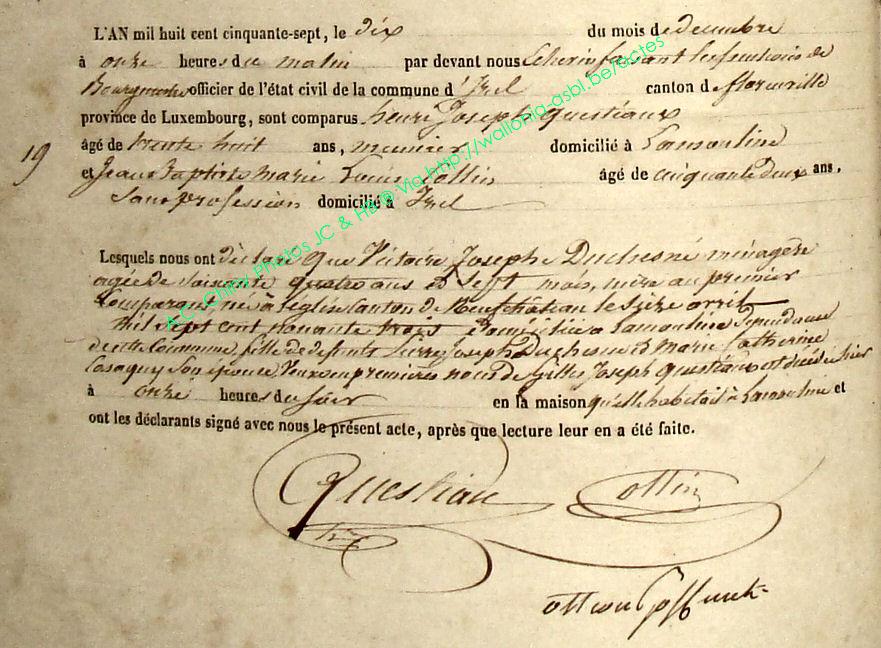 L'AN mil huit cent cinquante-sept, le dix du mois de decembre
à onze heures du matin par devant nous Echevin faisant les fonctions de
Bourgmestre officier de l'état civil de la commune d'Izel canton de florenville
province de Luxembourg, sont comparus henri Joseph Questiaux
19
âgé de trente huit ans, meunier domicilié à Lamouline
et Jean Baptiste Marie Louis ottin âgé de cinquante deux ans,
Sans profession domicilié à Izel
Lesquels nous ont déclaré que Victoire Joseph Duchesne ménagère
agée de Soixante quatre ans et Sept mois, mère au premier
Comparant, né à léglise Canton de Neufchâteau le Seize avril
Mil Sept Cent Nonante trois domiciliée à Lamouline dependance
de cette Commune, fille de defunts Pierre Joseph Duchesne et Marie Catherine
Son épouse Veuve en premieres noces de Gilles Joseph Questiaux est décédée hier
à onze heures du Soir en la maison qu'elle habitait à Lamouline et
ont les déclarants signé avec nous le présent acte, après que lecture leur en a été faite.
Questiau
ottin
A.C. Chiny Photos JC & HB @ Via http://wallonia-asbl.be/actes